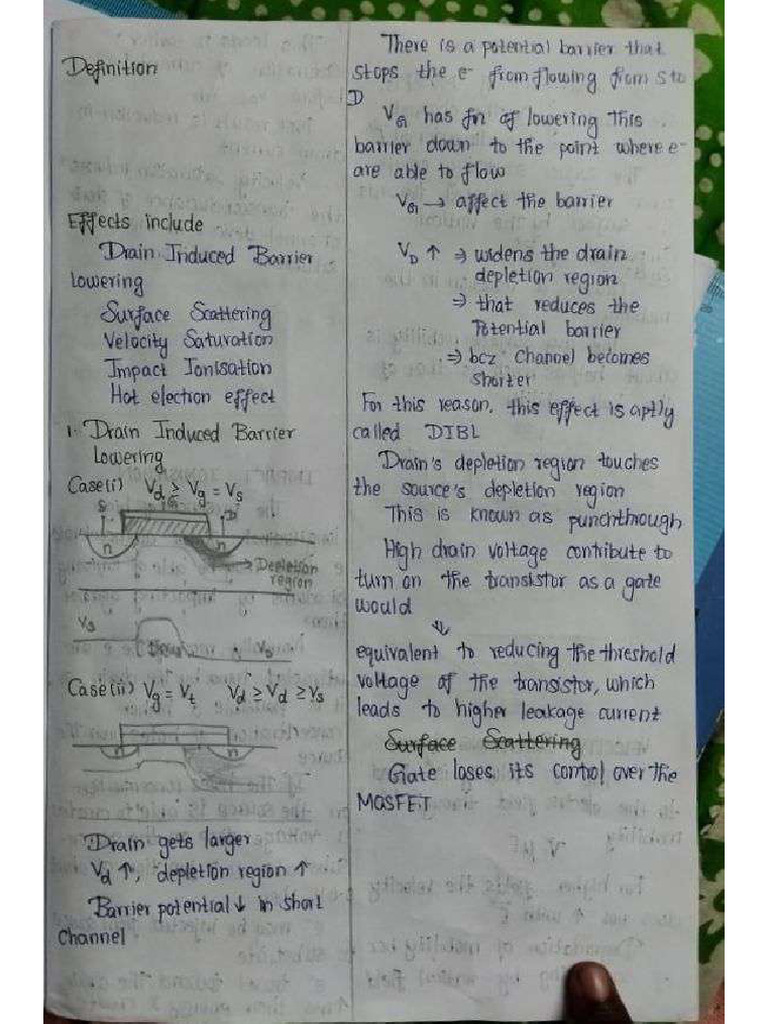 Definition
Effects include
Drain Induced Barrier
Lowering
Surface Scattering
Velocity Saturation
Impact Ionisation
Hot electron effect
1. Drain Induced Barrier
Lowering
Case(i) Vd ≥ Vg = Vs
S G D
n n
Depletion
region
Vs
Case(ii) Vg = Vt Vd ≥ Vd ≥ Vs
n n
Drain gets larger
Vd ↑, depletion region ↑
Barrier potential ↓ in short
Channel
There is a potential barrier that
stops the e⁻ from flowing from S to
D
VG has fn of lowering this
barrier down to the point where e⁻
are able to flow
VG → affect the barrier
VD ↑ ⇒ widens the drain
depletion region
⇒ that reduces the
Potential barrier
⇒ bcz channel becomes
shorter
For this reason, this effect is aptly
called DIBL
Drain's depletion region touches
the source's depletion region
This is known as punchthrough
High drain voltage contribute to
turn on the transistor as a gate
would
⇓
equivalent to reducing the threshold
voltage of the transistor, which
leads to higher leakage current
Surface Scattering
Gate loses its control over the
MOSFET